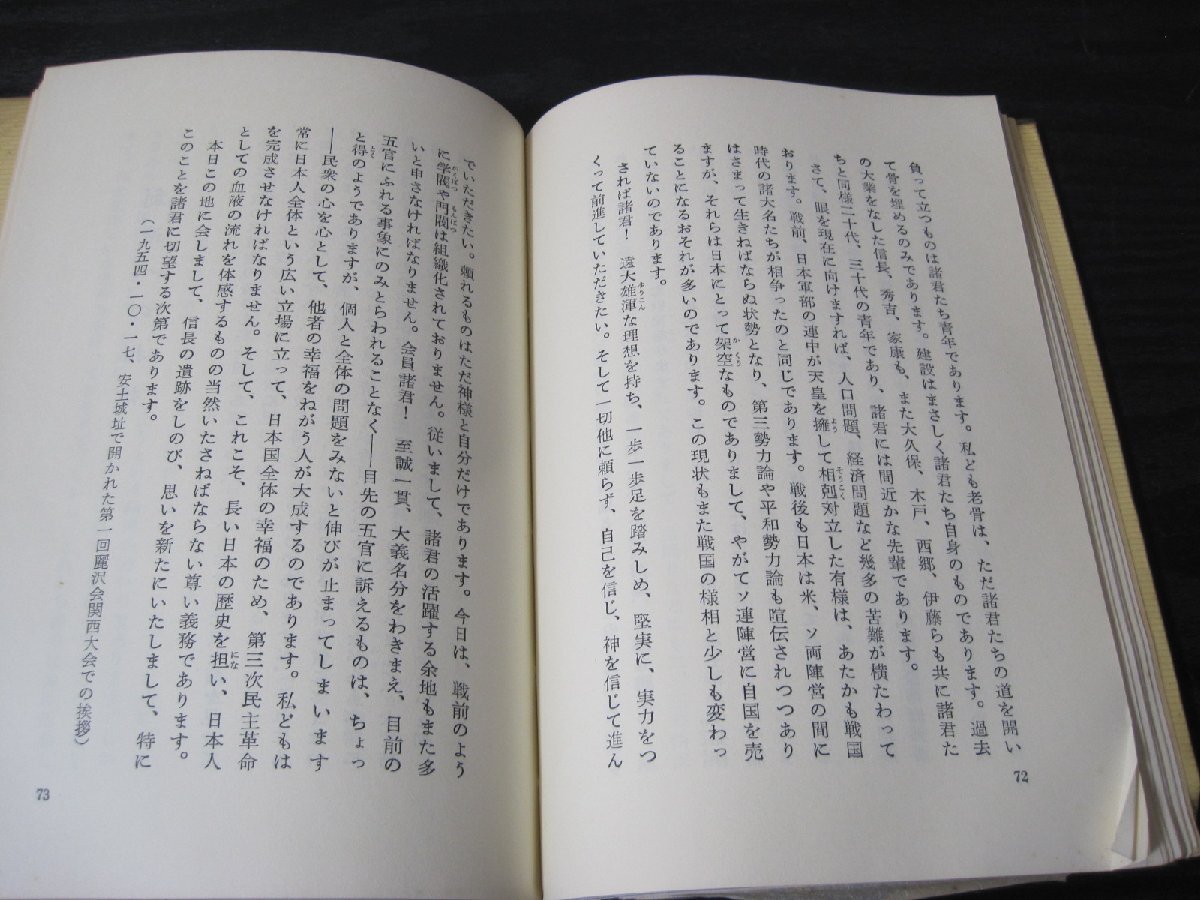 負って立つものは諸君たち青年であります。私ども老骨は、ただ諸君たちの道を開い
て骨を埋めるのみであります。建設はまさしく諸君たち自身のものであります。過去
の大業をなした信長、秀吉、家康も、また大久保、木戸、西郷、伊藤らも共に諸君た
ちと同様二十代、三十代の青年であり、諸君には間近かな先輩であります。
さて、眼を現在に向けますれば、人口問題、経済問題など幾多の苦難が横たわって
おります。戦前、日本軍部の連中が天皇を擁して相剋対立した有様は、あたかも戦国
時代の諸大名たちが相争ったのと同じであります。戦後も日本は米、ソ両陣営の間に
はさまって生きねばならぬ状勢となり、第三勢力論や平和勢力論も喧伝されつつあり
ますが、それらは日本にとって架空なものでありまして、やがてソ連陣営に自国を売
ることになるおそれが多いのであります。この現状もまた戦国の様相と少しも変わっ
ていないのであります。
されば諸君！　遠大雄渾な理想を持ち、一歩一歩足を踏みしめ、堅実に、実力をつ
くって前進していただきたい。そして一切他に頼らず、自己を信じ、神を信じて進ん
72
でいただきたい。頼れるものはただ神様と自分だけであります。今日は、戦前のよう
に学閥や門閥は組織化されておりません。従いまして、諸君の活躍する余地もまた多
いと申さなければなりません。会員諸君！　至誠一貫、大義名分をわきまえ、目前の
五官にふれる事象にのみとらわれることなく――目先の五官に訴えるものは、ちょっ
と得のようでありますが、個人と全体の問題をみないと伸びが止まってしまいます
――民衆の心を心として、他者の幸福をねがう人が大成するのであります。私どもは
常に日本人全体という広い立場に立って、日本国全体の幸福のため、第三次民主革命
を完成させなければなりません。そして、これこそ、長い日本の歴史を担い、日本人
としての血液の流れを体感するものの当然いたさねばならない尊い義務であります。
本日この地に会しまして、信長の遺跡をしのび、思いを新たにいたしまして、特に
このことを諸君に切望する次第であります。
（一九五四・一〇・一七、安土城址で開かれた第一回麗沢会関西大会での挨拶）
73